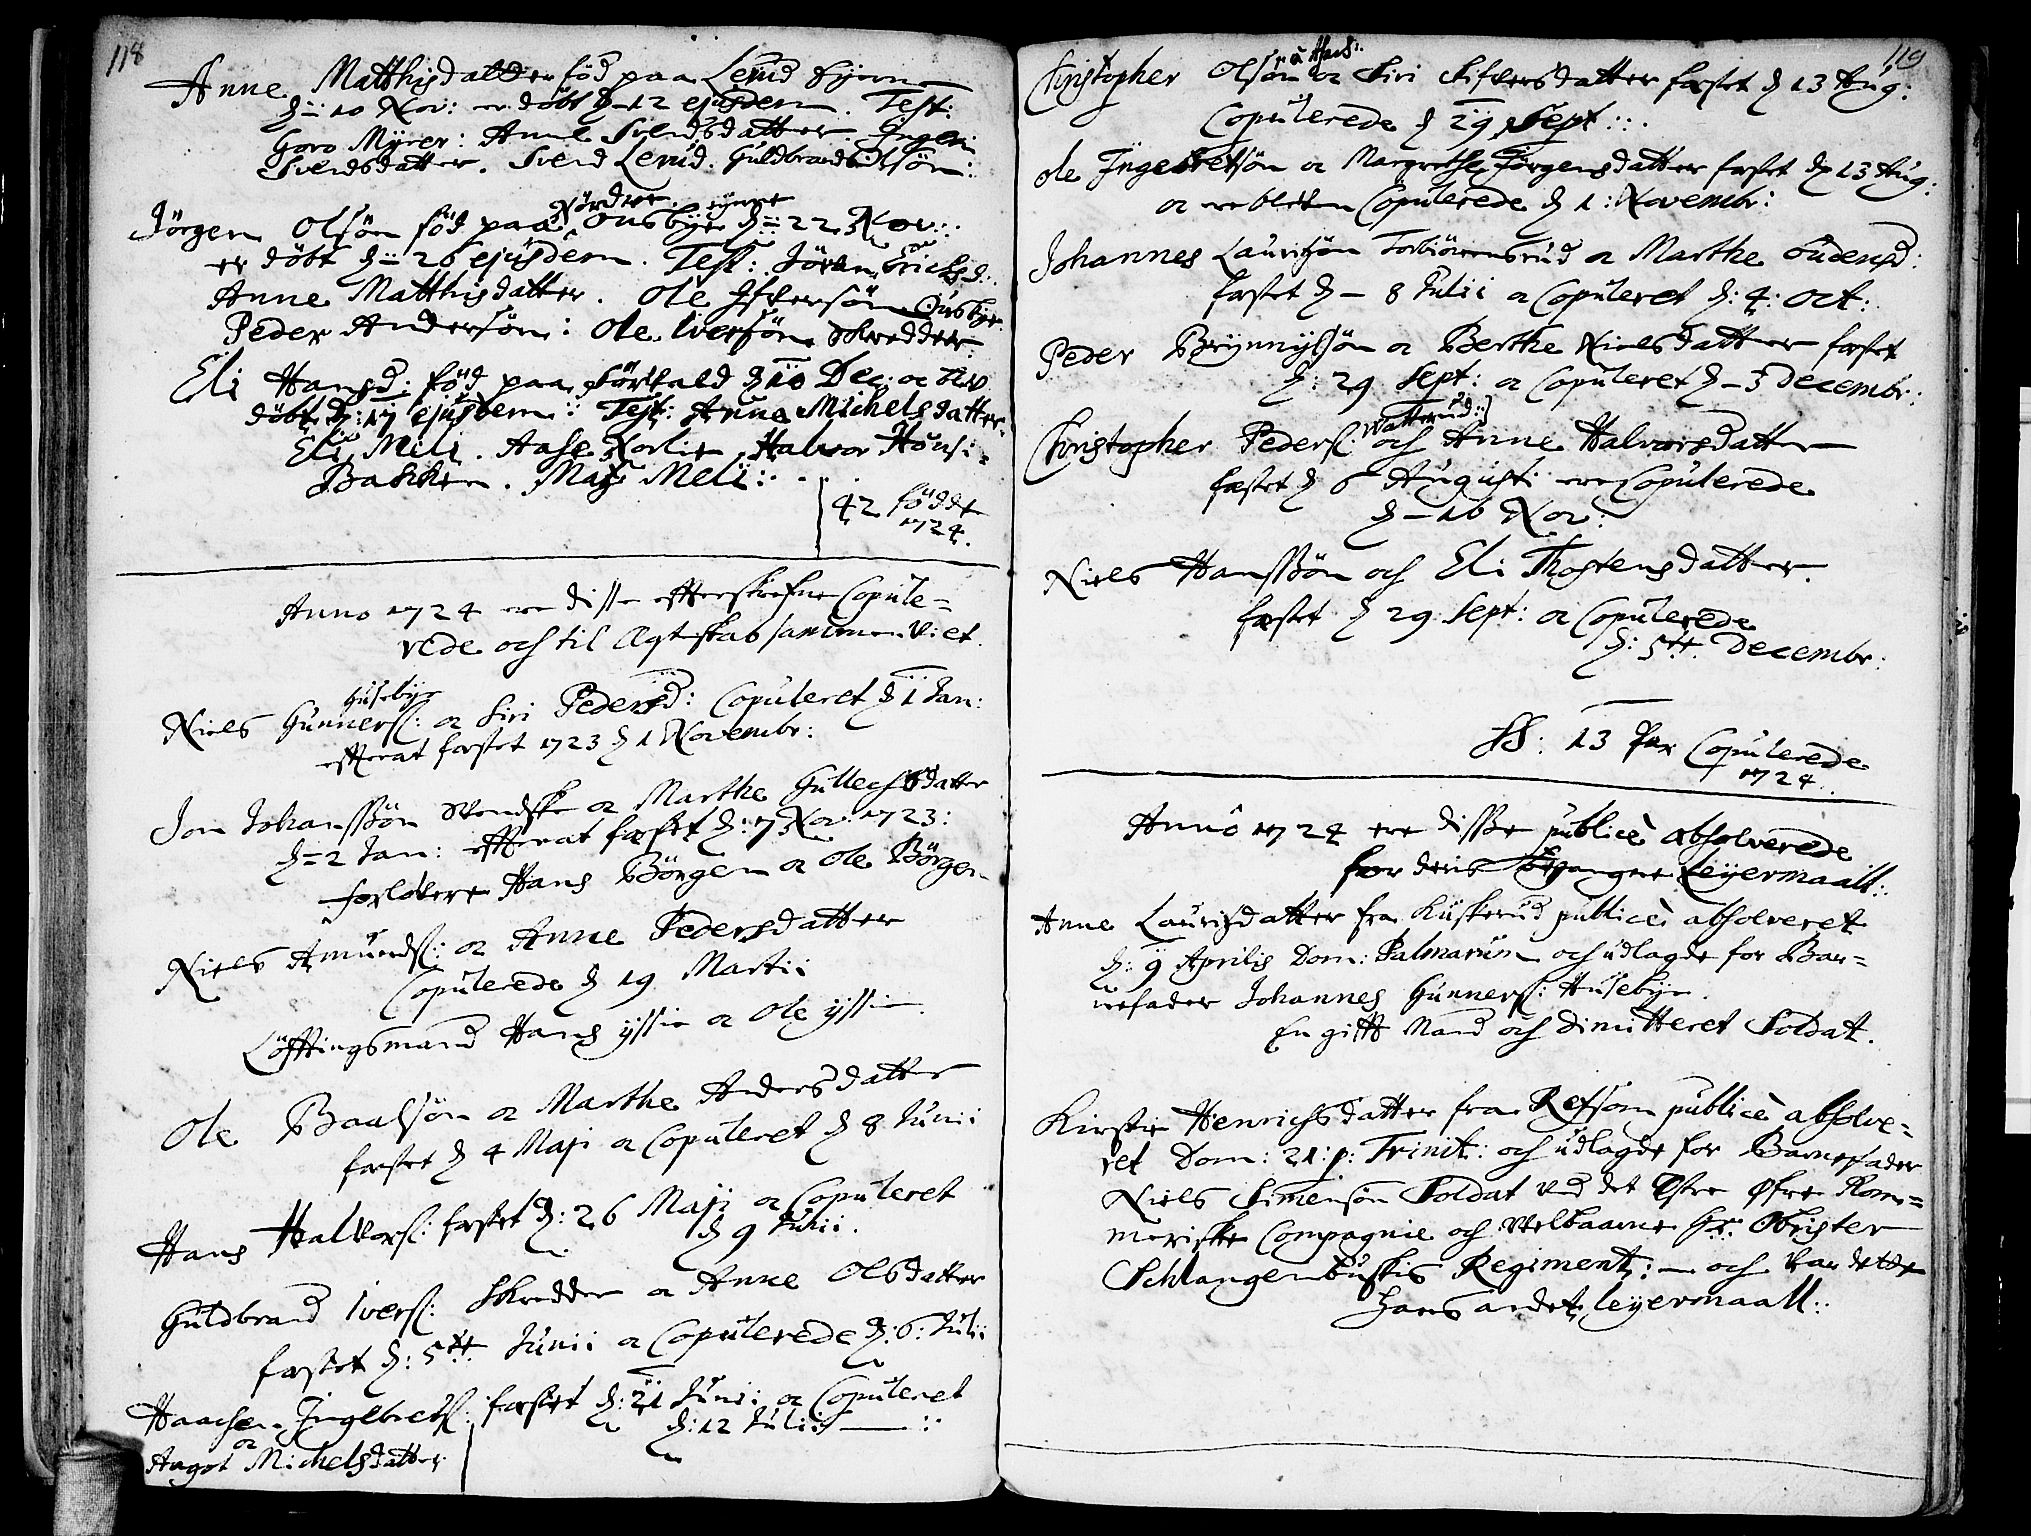 118
Anne Matthisdatter föd paa Lerud
d= 10 Nov: er döbt d 12 ejusdem. Test:
Goro Myrer: Anne Svendsdatter. Ingeri
Svendsdatter. Svend Lerud. Guldbrand Olsön:
Nördre
Jörgen Olsön föd paa Ousbye d= 22 Nov:
er döbt d= 26 ejusdem. Test: Jöran Erichsd:
Anne Matthisdatter. Ole Ifversön Ousbye
Peder Andersön: Ole Iversön Skredder
Eli Hansd: föd paa d 10 Dec: oc blev
döbt d: 17 ejusdem: Test: Anna Michelsdatter.
Eli Meli. Aase Norlie Halvor Hönsi=
Bakken. Meli:
42 födde
1724.
Anno 1724 ere disse efterskrefne Copule=
rede och til Ægteskab sammen Viet.
Husebye
Niels Gunners: oc Siri Pedersd: Copuleret d 1 Jan:
efterat fæstet 1723 d 1 Novembr:
Jon Johanssön Svendske oc Marthe Gullechsdatter
d= 2 Jan: efterat fæstet d: 7 Nov: 1723:
forlovere Hans Börgen oc Ole Börgen
Niels Amunds: oc Anne Pedersdatter
Copulerede d 19 Martii
Löfftingsmænd Hans yssie oc Ole yssie.
Ole Baalsön oc Marthe Andersdatter
fæstet d 4 Maji oc Copuleret d 8 Junii
Hans Halvors: fæstet d: 26 Maji oc Copuleret
d 9 Julii.
Guldbrand Ivers: Skredder oc Anne Olsdatter
fæstet d: 5te Junii oc Copulerede d: 6: Julii
Haachen Ingebrets: fæstet d: 21 Juni: oc Copuleret
oc d: 12 Julii
Aagot Michelsdatter
119
Christopher Olsön oc Siri Sifversdatter fæstet d 13 Aug:
Copulerede d 29 Sept:
Ole Ingebretsön oc Margrethe Jörgensdatter fæstet d 13 Aug:
oc ere bleven Copulerede d 1: Novembr:
Johannes Lauritsön Torbiörensrud oc Marthe Oudensd:
fæstet d - 8 Julii oc Copuleret d: 4: Oct:
Peder Brynnyldsön oc Berthe Nielsdatter fæstet
d: 29 Sept: oc Copuleret d - 3 Decembr:
Watterud
Christopher Peders: och Anne Halvorsdatter
fæstet d 6 August: ere Copulerede
d - 16 Nov:
Niels Hanssön och Eli Thostensdatter.
fæstet d 29 Sept: oc Copulerede
d: 5te Decembr:
SS: 13 Par Copulerede
1724.
Anno 1724 ere disse publicè absolverede
for deris begangne Leyermaall:
Anne Lauritsdatter fra Kuskerud publicè absolveret
d: 9 Aprilis Dom: Palmarum och udlagde for Bar=
nefader Johannes Gunners: Husebye.
En gifft Mand och dimitteret Soldat.
Kirstie Henrichsdatter fra Refsom publicè absolve=
ret Dom: 21: p: Trinit: och udlagde for Barnefader
Niels Simensön Soldat Ved det Østre Øfre Rom=
meriske Compagnie och Welbaarne Hr: Obrister
Schlangenbuskis Regiment: — och Var dette
hans andet Leyermaall: